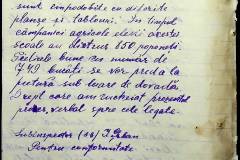 sunt împodobite cu diferite
planșe și tablouri. În timpul
campaniei agricole elevii acestei
școale au distrus 650 poponeți.
Pieirele bune în număr de
1749 bucăți se vor preda la
pictură sub luare de dovadă
Drept care am încheiat prezentul
proces, verbal spre cele legale.
Subinspector (ss) I. Urban
Pentru conformitate